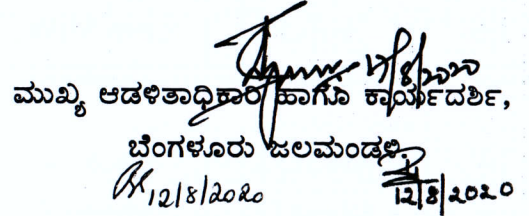 12/8/2020
ಮುಖ್ಯ ಆಡಳಿತಾಧಿಕಾರಿ ಹಾಗೂ ಕಾರ್ಯದರ್ಶಿ,
ಬೆಂಗಳೂರು ಜಲಮಂಡಳಿ.
12/8/2020 12/8/2020